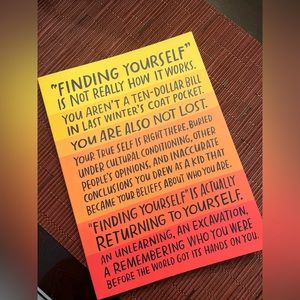 "FINDING YOURSELF"
IS NOT REALLY HOW IT WORKS.
YOU AREN'T A TEN-DOLLAR BILL
IN LAST WINTER'S COAT POCKET.
YOU ARE ALSO NOT LOST.
YOUR TRUE SELF IS RIGHT THERE, BURIED
UNDER CULTURAL CONDITIONING, OTHER
PEOPLE'S OPINIONS, AND INACCURATE
CONCLUSIONS YOU DREW AS A KID THAT
BECAME YOUR BELIEFS ABOUT WHO YOU ARE.
"FINDING YOURSELF" IS ACTUALLY
RETURNING TO YOURSELF.
AN UNLEARNING, AN EXCAVATION,
A REMEMBERING WHO YOU WERE
BEFORE THE WORLD GOT ITS HANDS ON YOU.